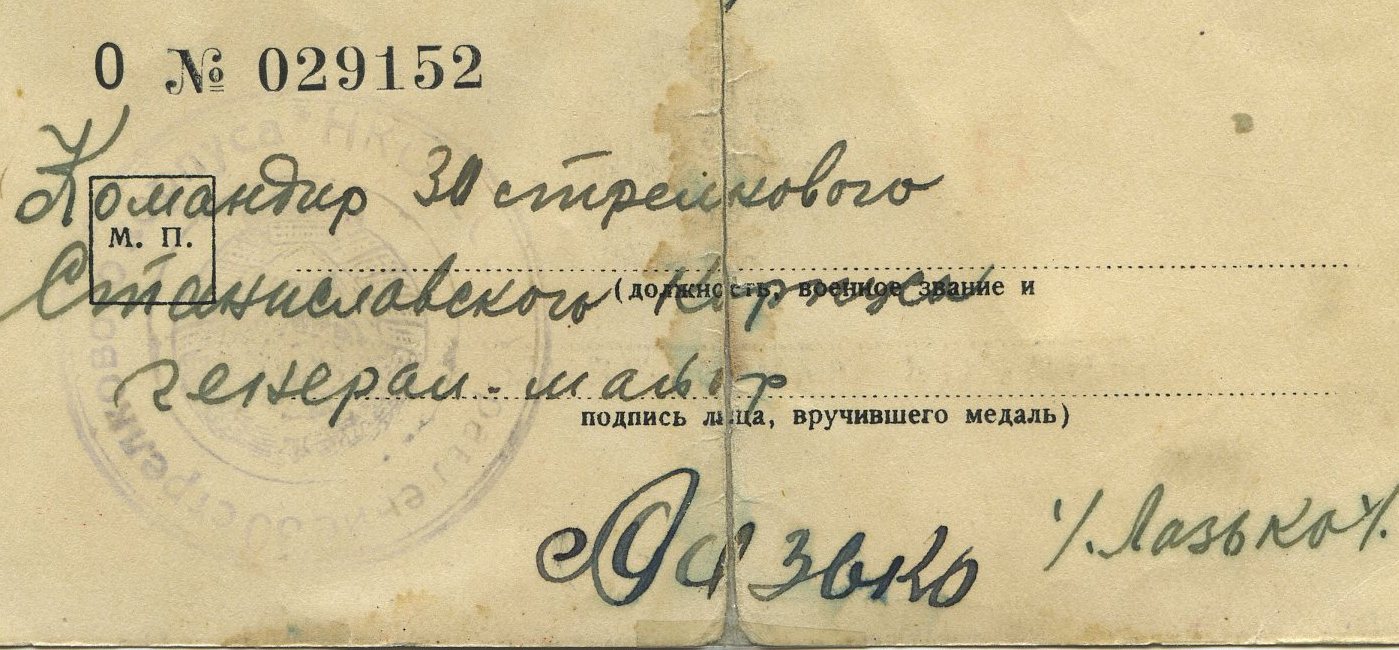 О № 029152
Командир 30 стрелкового
М. П.
Станиславского Корпуса
(должность, военное звание и
генерал-майор
подпись лица, вручившего медаль)
Лазько /.Лазько/.